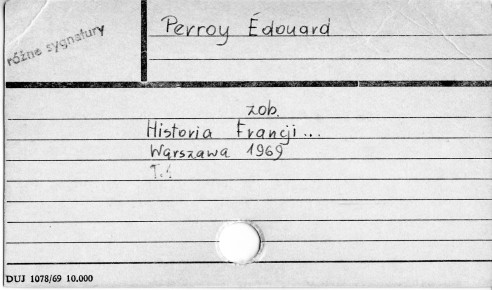 różne sygnatury
Perroy Édouard
zob.
Historia Francji...
Warszawa 1969
T.1
DUJ 1078/69 10.000